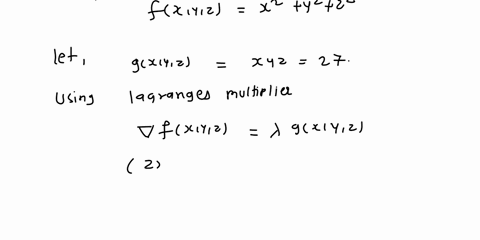 f(x,y,z) = x² + y² + z²
let, g(x,y,z) = xyz = 27.
Using lagranges multiplier
∇ f(x,y,z) = λ g(x,y,z)
( 2)